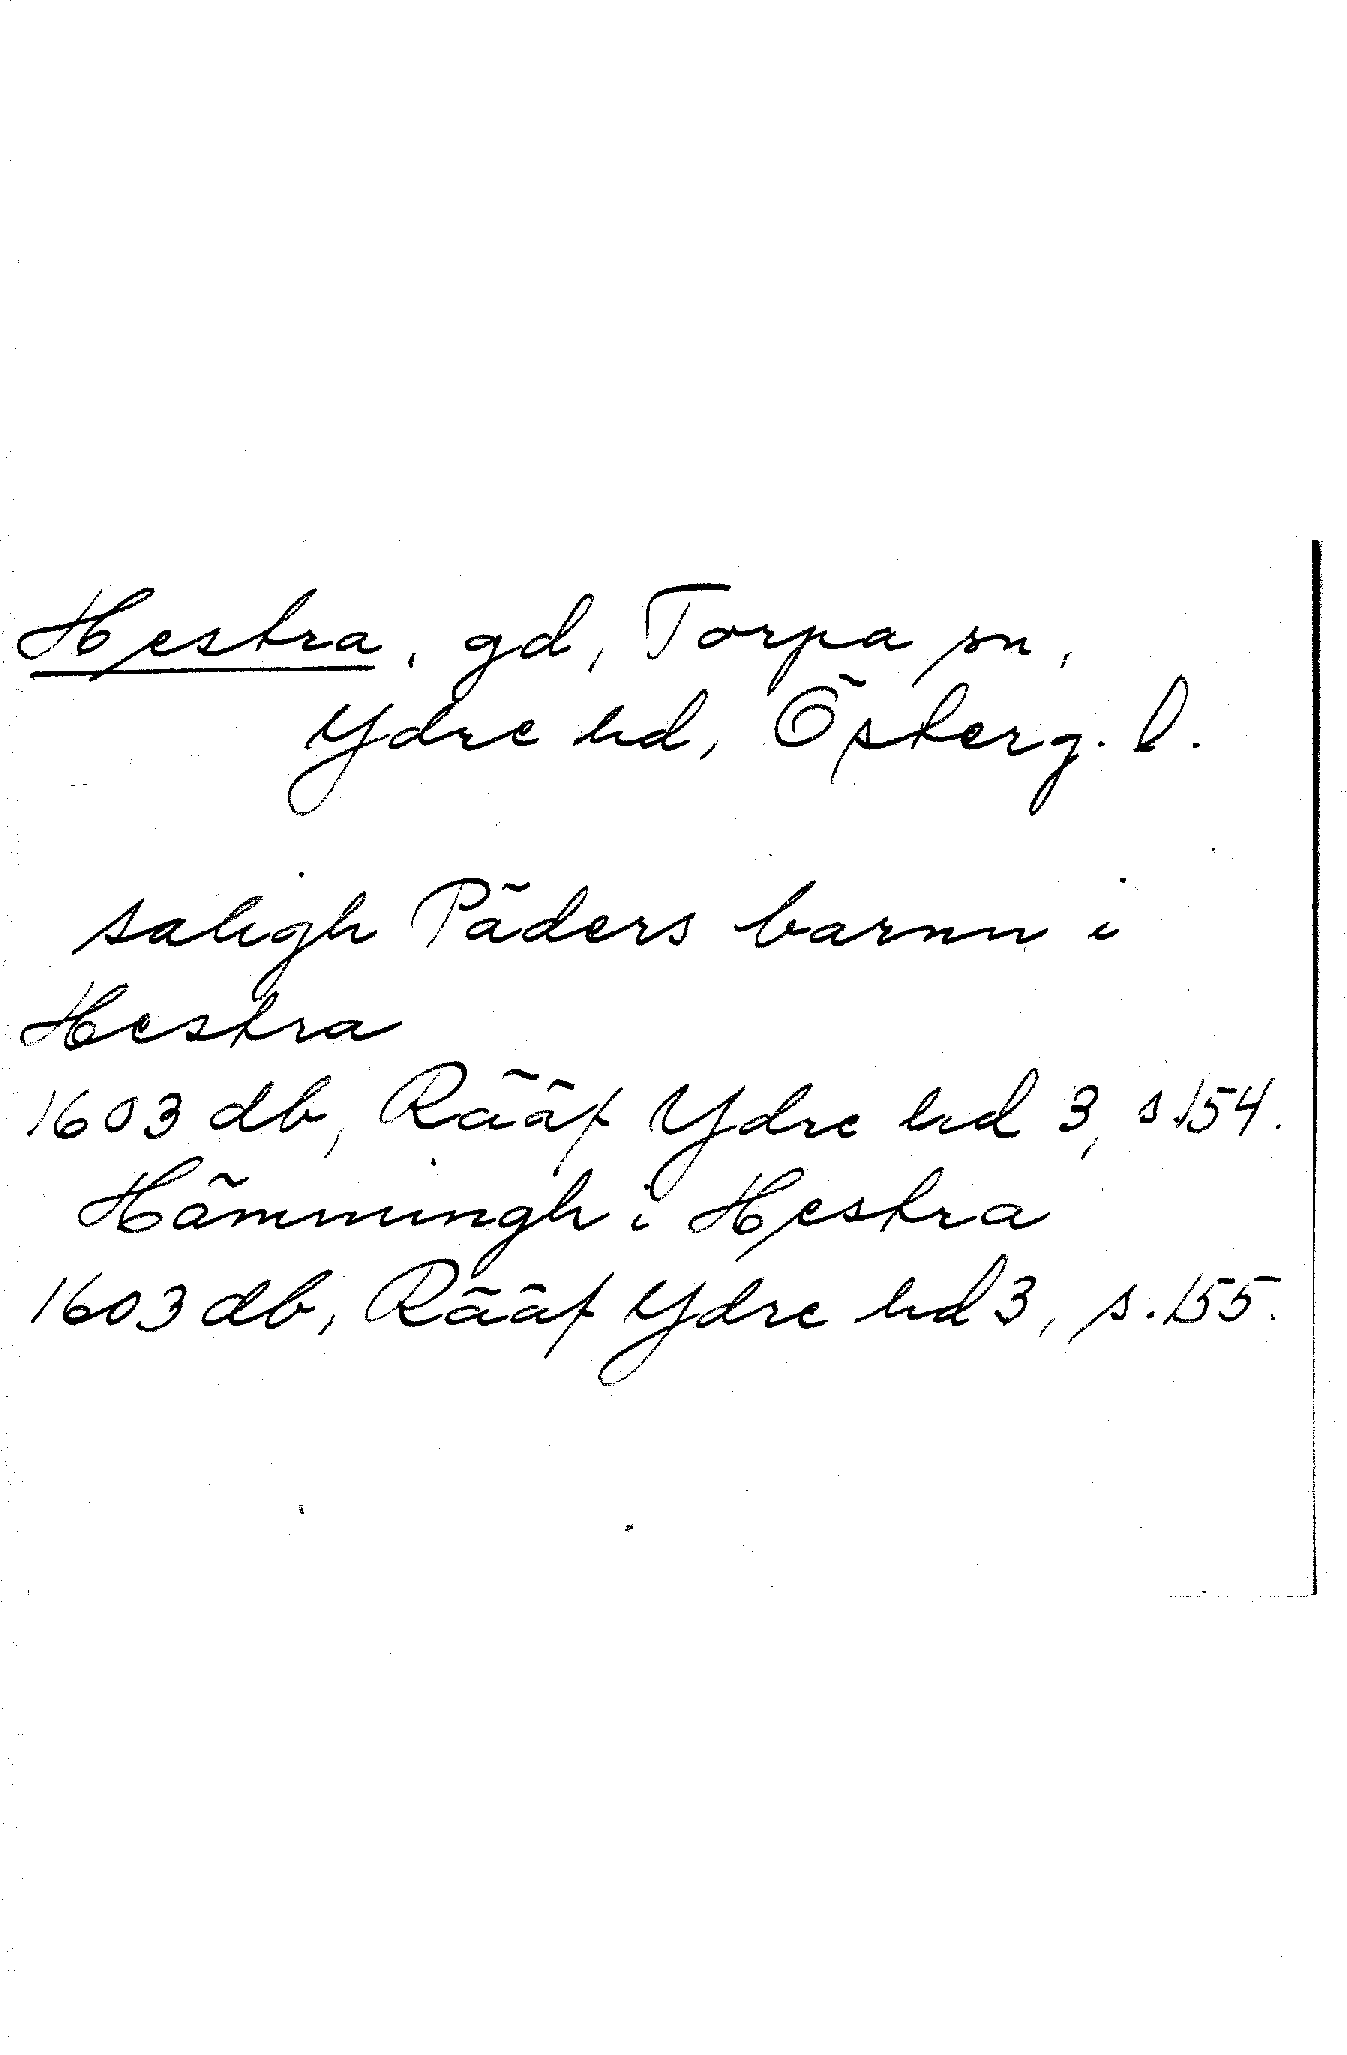 Hestra, gd, Torpa sn,
Ydre hd, Österg. l.
saligh Päders barnn i
Hestra
1603 db, Rääf Ydre hd 3, s.154.
Hämmingh i Hestra
1603 db, Rääf Ydre hd 3, s.155.